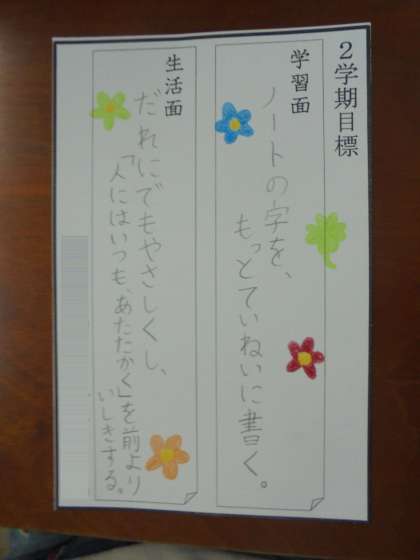 2学期目標
学習面
ノートの字を、
もっとていねいに書く。
生活面
だれにでもやさしくし、
「人にはいつも、あたたかく」を前より
いしきする。